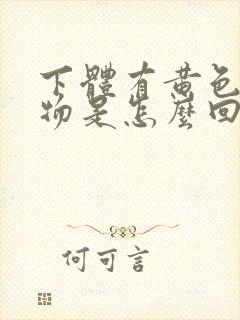 下體有黃色
物是怎麼回
何可言